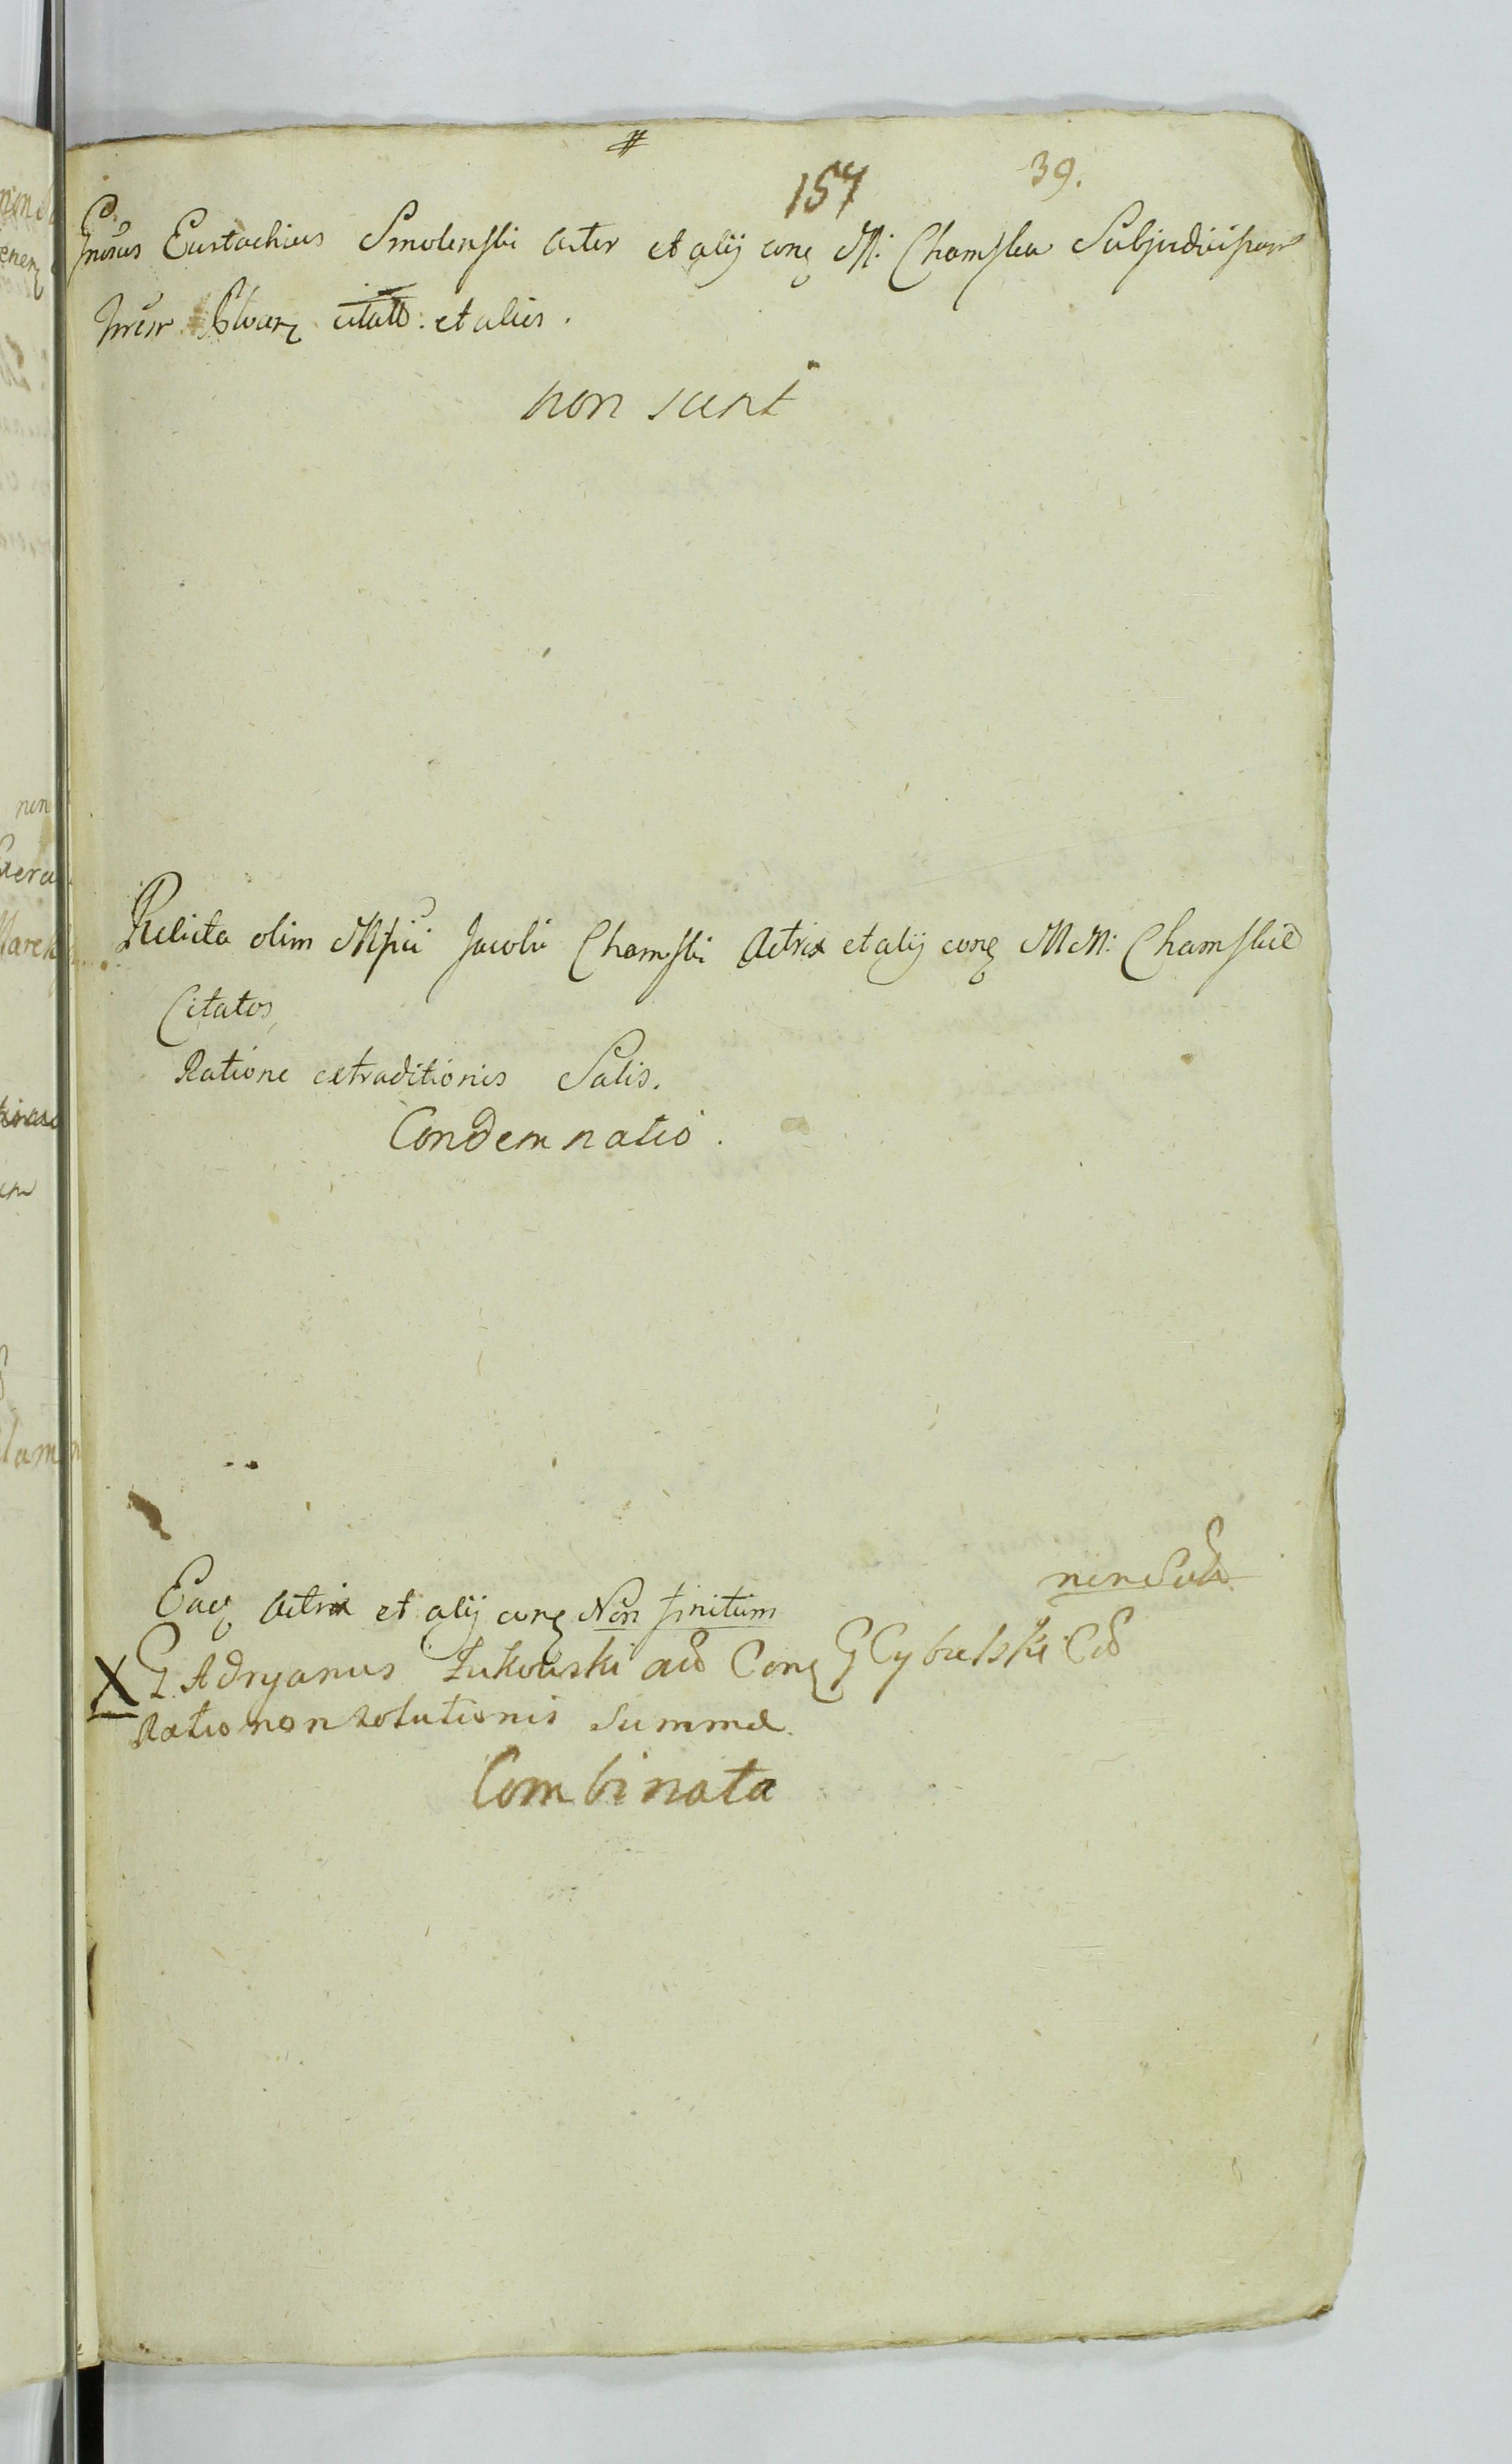 #
157 39.
Gnosus Eustachius Smolenski Actor et alij conq M: Chamska Subjudicissam
citatt: et alios.
non sunt
Relicta olim Mfici Jacobi Chamski Actrix et alij conq MM: Chamskie
Citatos,
Ratione extraditionis Salis.
Condemnatio.
Eaq Actrix et alij conq Non finitum
X G Adryanus Żukowski ad Conq G Cybulski Cd
Ratio non Solutionis Summæ.
Combinata